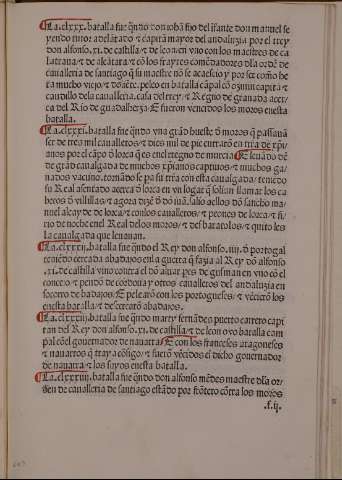 ¶La.clxxx.batalla fue q̃ndo don iohã fijo del ĩfante don manuel se
yendo tutor adelãtado ⁊ capitã mayor del andaluzia por el rrey
don alfonso.xi.de castilla ⁊ de leon eñ vno con los maestres de ca
latraua ⁊ de alcãtara ⁊ cõ los frayres comẽdadores dla ordẽ de
caualleria de santiago q̃ su maestre nõ se acaescio y por ser coño he
ra mucho viejo ⁊ dolẽte.peleo en batalla cãpal cõ ozmin capitã ⁊
caudillo dela caualleria. casa del rrey ⁊ Regno de granada acer
ca del Rio de guadalherza.E fueron vencidos los moros enesta
batalla.
¶La.clxxxi.batalla fue q̃ndo vna grãd hueste d' moros q̃ passauã
ser de tres mil caualleros ⁊ dies mil de pie entrarõ en trra de xp̃i
anos por el cãpo d' lorca q̃ es enel regno de murcia E leuãdo dẽ
de grãd caualgada de muchos xp̃ianos captiuos ⁊ muchos ga
nados vacuno.tornãdo se pa su trra con esta caualgada ⁊ teniẽdo
su Real asentado acerca d' lorca en vn logar q̃ solian llamar los ca
beros d' villillas ⁊ agora dizẽ d' dõ iuã.salio aellos dõ sancho ma
nuel alcayde de lorca ⁊ conlos caualleros ⁊ peones de lorca ⁊ fi
rio de noche enel Real delos moros ⁊ des barato los ⁊ quito les
la caualgada que leuauan.
¶La.clxxxij.batalla fue q̃ndo el Rey don alfonso.iiij.d' portogal
teniẽdo cercada abadajos en la guerra q̃ fazia al Rey dõ alfonso
.xi.de castilla vino contra el dõ aluar peres de gusman en vno cõ el
concejo ⁊ pendõ de cordoua y otros caualleros del andaluzia en
socorro de badajos.E pelearõ con los portogueses ⁊ vẽciero los
enesta batalla ⁊ descercarõ abadajos.
¶La.clxxxiij.batalla fue q̃ndo martỹ fernãdes puerto carrero capi
tan del Rey don alfonso.xi.de castilla ⁊ de leon ovo batalla cam
pal cõel gouernador de nauarra E con los franceses aragoneses
⁊ nauarros q̃ tray a cõsigo/ ⁊ fuerõ vẽcidos el dicho gouernador
de nauarra ⁊ los suyos enesta batalla.
¶La.clxxxiiij.batalla fue q̃ndo don alfonso mẽdes maestre dla or
den de caualleria de santiago estãdo por frõtero cõtra los moros
.f.ij.